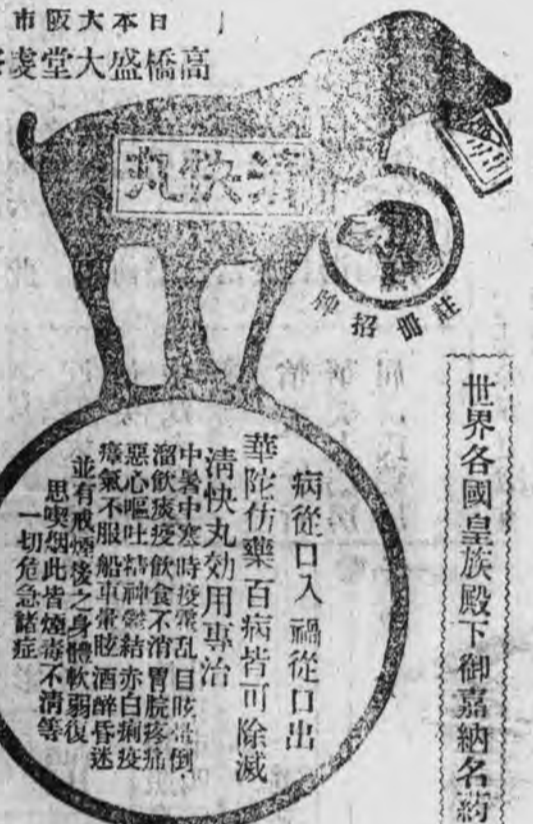 日本大阪市
高橋盛大堂
清快丸
註冊招牌
世界各國皇族殿下御嘉納名葯
病從口入 禍從口出
華陀仿藥百病皆可除滅
清快丸効用專治
中暑中寒時疫霍乱目眩暈倒
溜飲痰疫飲食不消胃脘疼痛
惡心嘔吐精神鬱結赤白痢疫
瘴氣不服船車暈眩酒醉昏迷
並有戒煙後之身體軟弱復
思喫烟此皆煙毒不清等
一切危急諸症